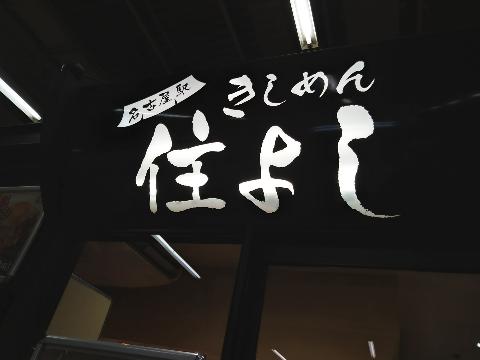 名古屋駅
きしめん
住よし